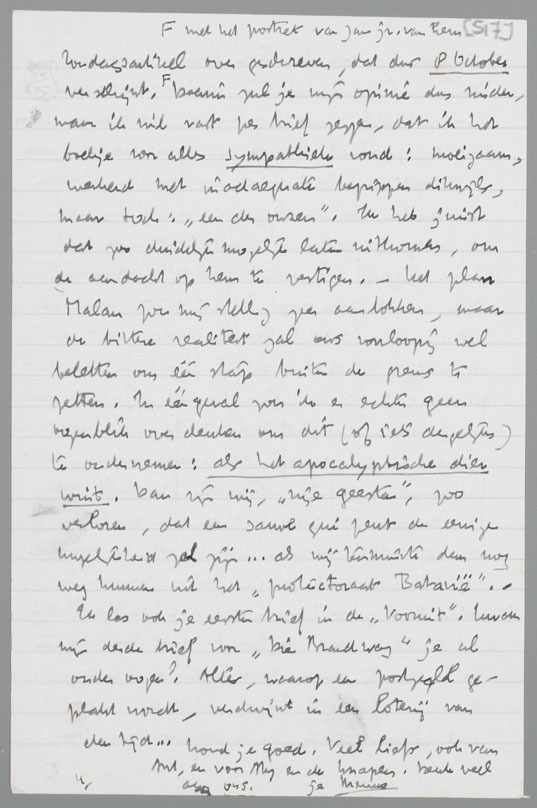 F met het portret van Jan Jr. van Rens [517]
Zondagsartikel over geschreven, dat dus 8 October
verschijnt. F Daarin zul je mijn opinie dus vinden,
maar ik wil vast per brief zeggen, dat ik het
boekje voor alles sympathiek vond: moeizaam,
werkend met inadaequate begrippen dikwijls,
maar toch: „een der onzen". Ik heb juist
dat zoo duidelijk mogelijk laten uitkomen, om
de aandacht op hem te vestigen. – Het plan
Malan zou mij sterk aanlokken, maar
de bittere realiteit zal ons voorloopig wel
beletten om één stap buiten de grens te
zetten. In één geval zou ik er echter geen
oogenblik over denken om dit (of iets dergelijks)
te ondernemen: als het apocalyptische dier
wint. Dan zijn wij, „vrije geesten", zoo
verloren, dat een sauve qui peut de eenige
mogelijkheid zal zijn... als wij tenminste dan nog
weg kunnen uit het „protectoraat Batavië". –
Ik las ook je eersten brief in de „Vooruit". Kwam
mijn derde brief voor „Die Brandwag" je al
onder oogen? Alles, waarop een postzegel ge-
plakt wordt, verdwijnt in een loterij van
den tijd... Houd je goed. Veel liefs, ook van
Ant, en voor Atty en de knapen. Denk veel
aan ons. je Menno